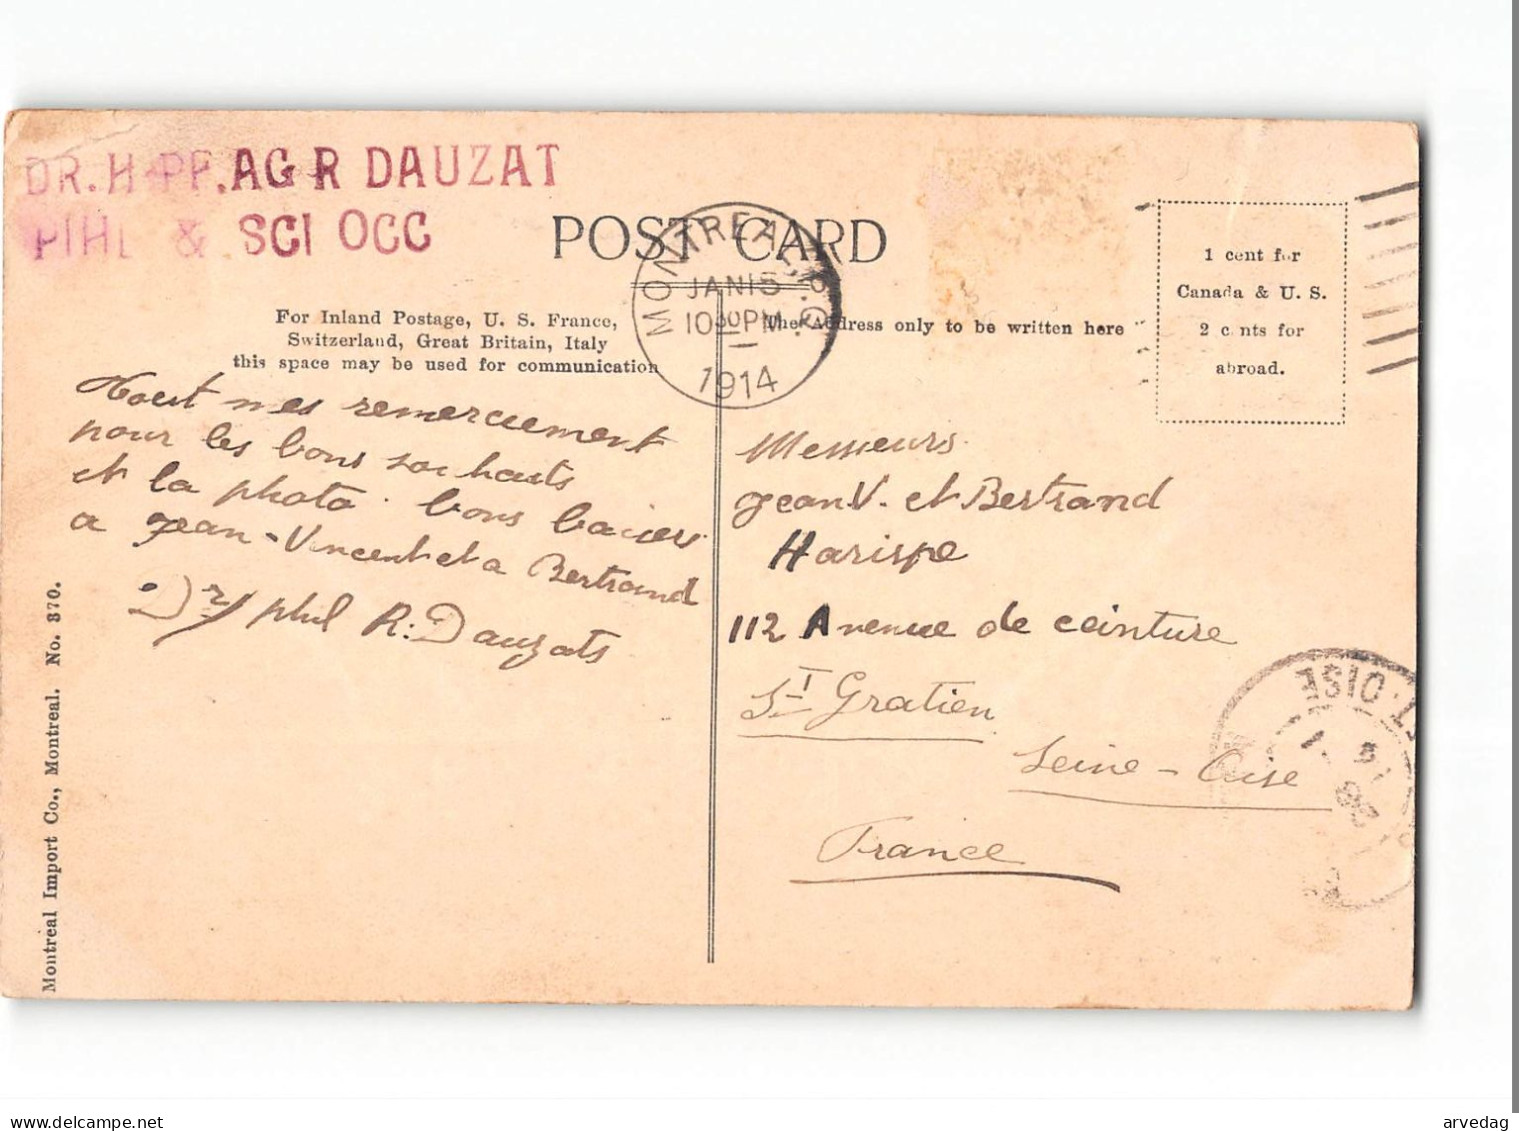 DR. H PF. AG R DAUZAT
PIHL & SCI OCC
POST CARD
MONTREAL, P.Q.
JAN 15
10 30 PM
1914
1 cent for
Canada & U. S.
2 c nts for
abroad.
For Inland Postage, U. S. France,
Switzerland, Great Britain, Italy
this space may be used for communication
The Address only to be written here
Tout mes remerciement
pour les bons souhaits
et la photo. bons baisers
a Jean-Vincent et a Bertrand
Dr/ phil R. Dauzats
Messieurs
Jean V. et Bertrand
Harispe
112 Avenue de ceinture
ST Gratien
Seine-Oise
France
ET-OISE
Montreal Import Co., Montreal. No. 370.
arvedag